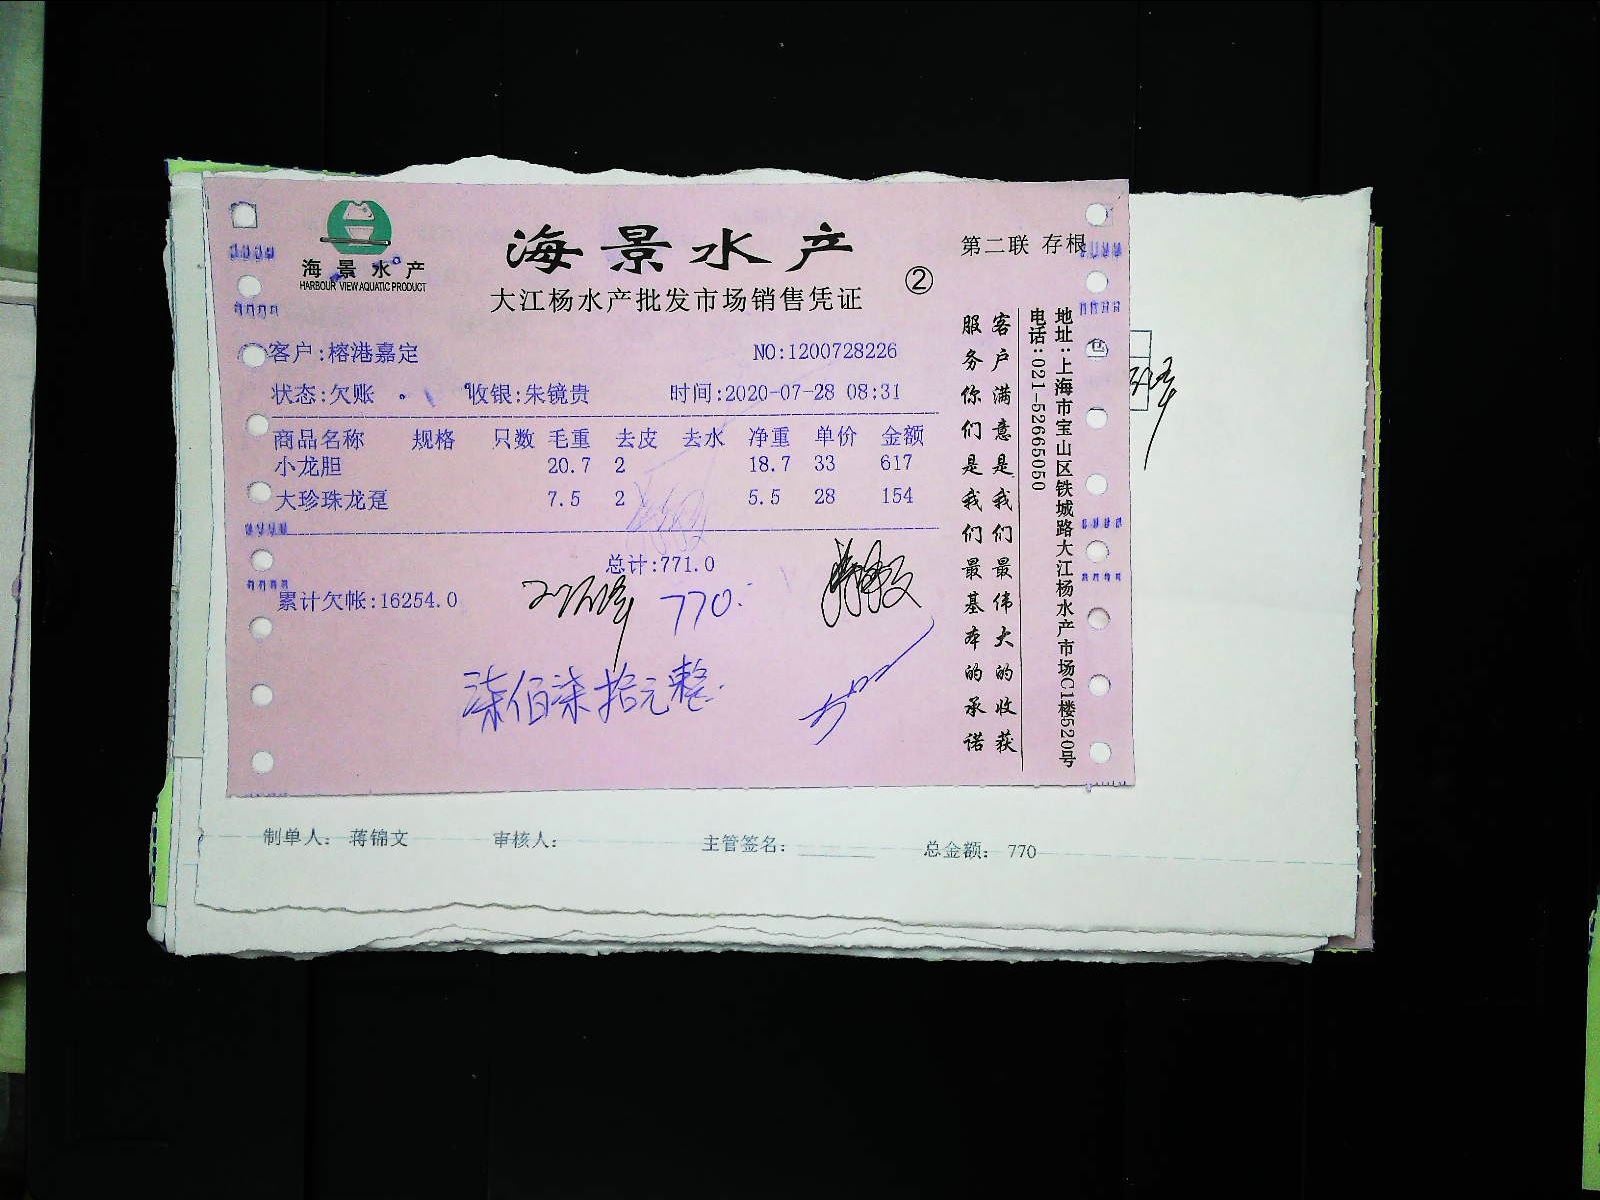 海景水产
HARBOUR VIEW AQUATIC PRODUCT
海景水产
大江杨水产批发市场销售凭证
②
第二联 存根
客户:榕港嘉定 NO:1200728226
状态:欠账 收银:朱镜贵 时间:2020-07-28 08:31
商品名称 规格 只数 毛重 去皮 去水 净重 单价 金额
小龙胆 20.7 2 18.7 33 617
大珍珠龙趸 7.5 2 5.5 28 154
总计:771.0
累计欠帐:16254.0
770.
柒佰柒拾元整.
客户满意是我们最伟大的收获
服务你们是我们最基本的承诺
地址:上海市宝山区铁城路大江杨水产市场C1楼520号
电话:021-52665050
制单人: 蒋锦文 审核人: 主管签名: 总金额: 770